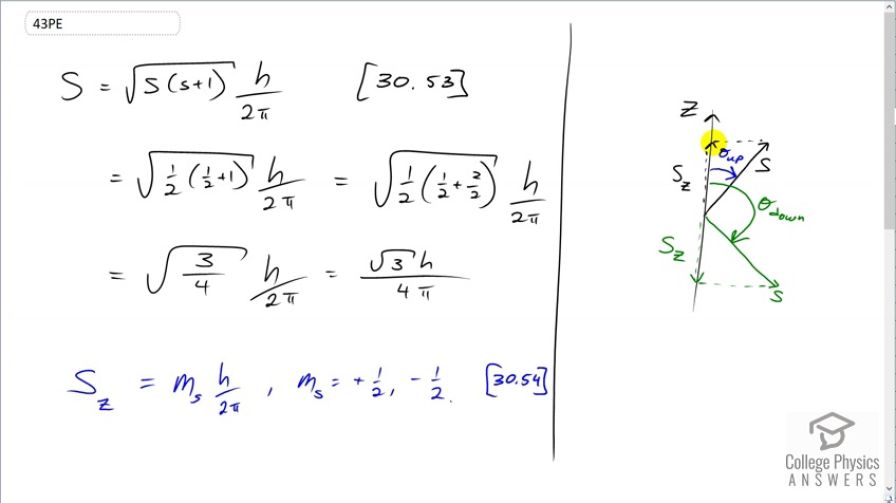 43PE
S = √s(s+1) h/2π [30.53]
= √1/2 (1/2+1) h/2π = √1/2 (1/2+2/2) h/2π
= √3/4 h/2π = √3 h/4π
S_z = m_s h/2π , m_s = +1/2, -1/2. [30.54]
Z
θ_up
S
S_z
θ_down
S_z
S
College Physics
ANSWERS